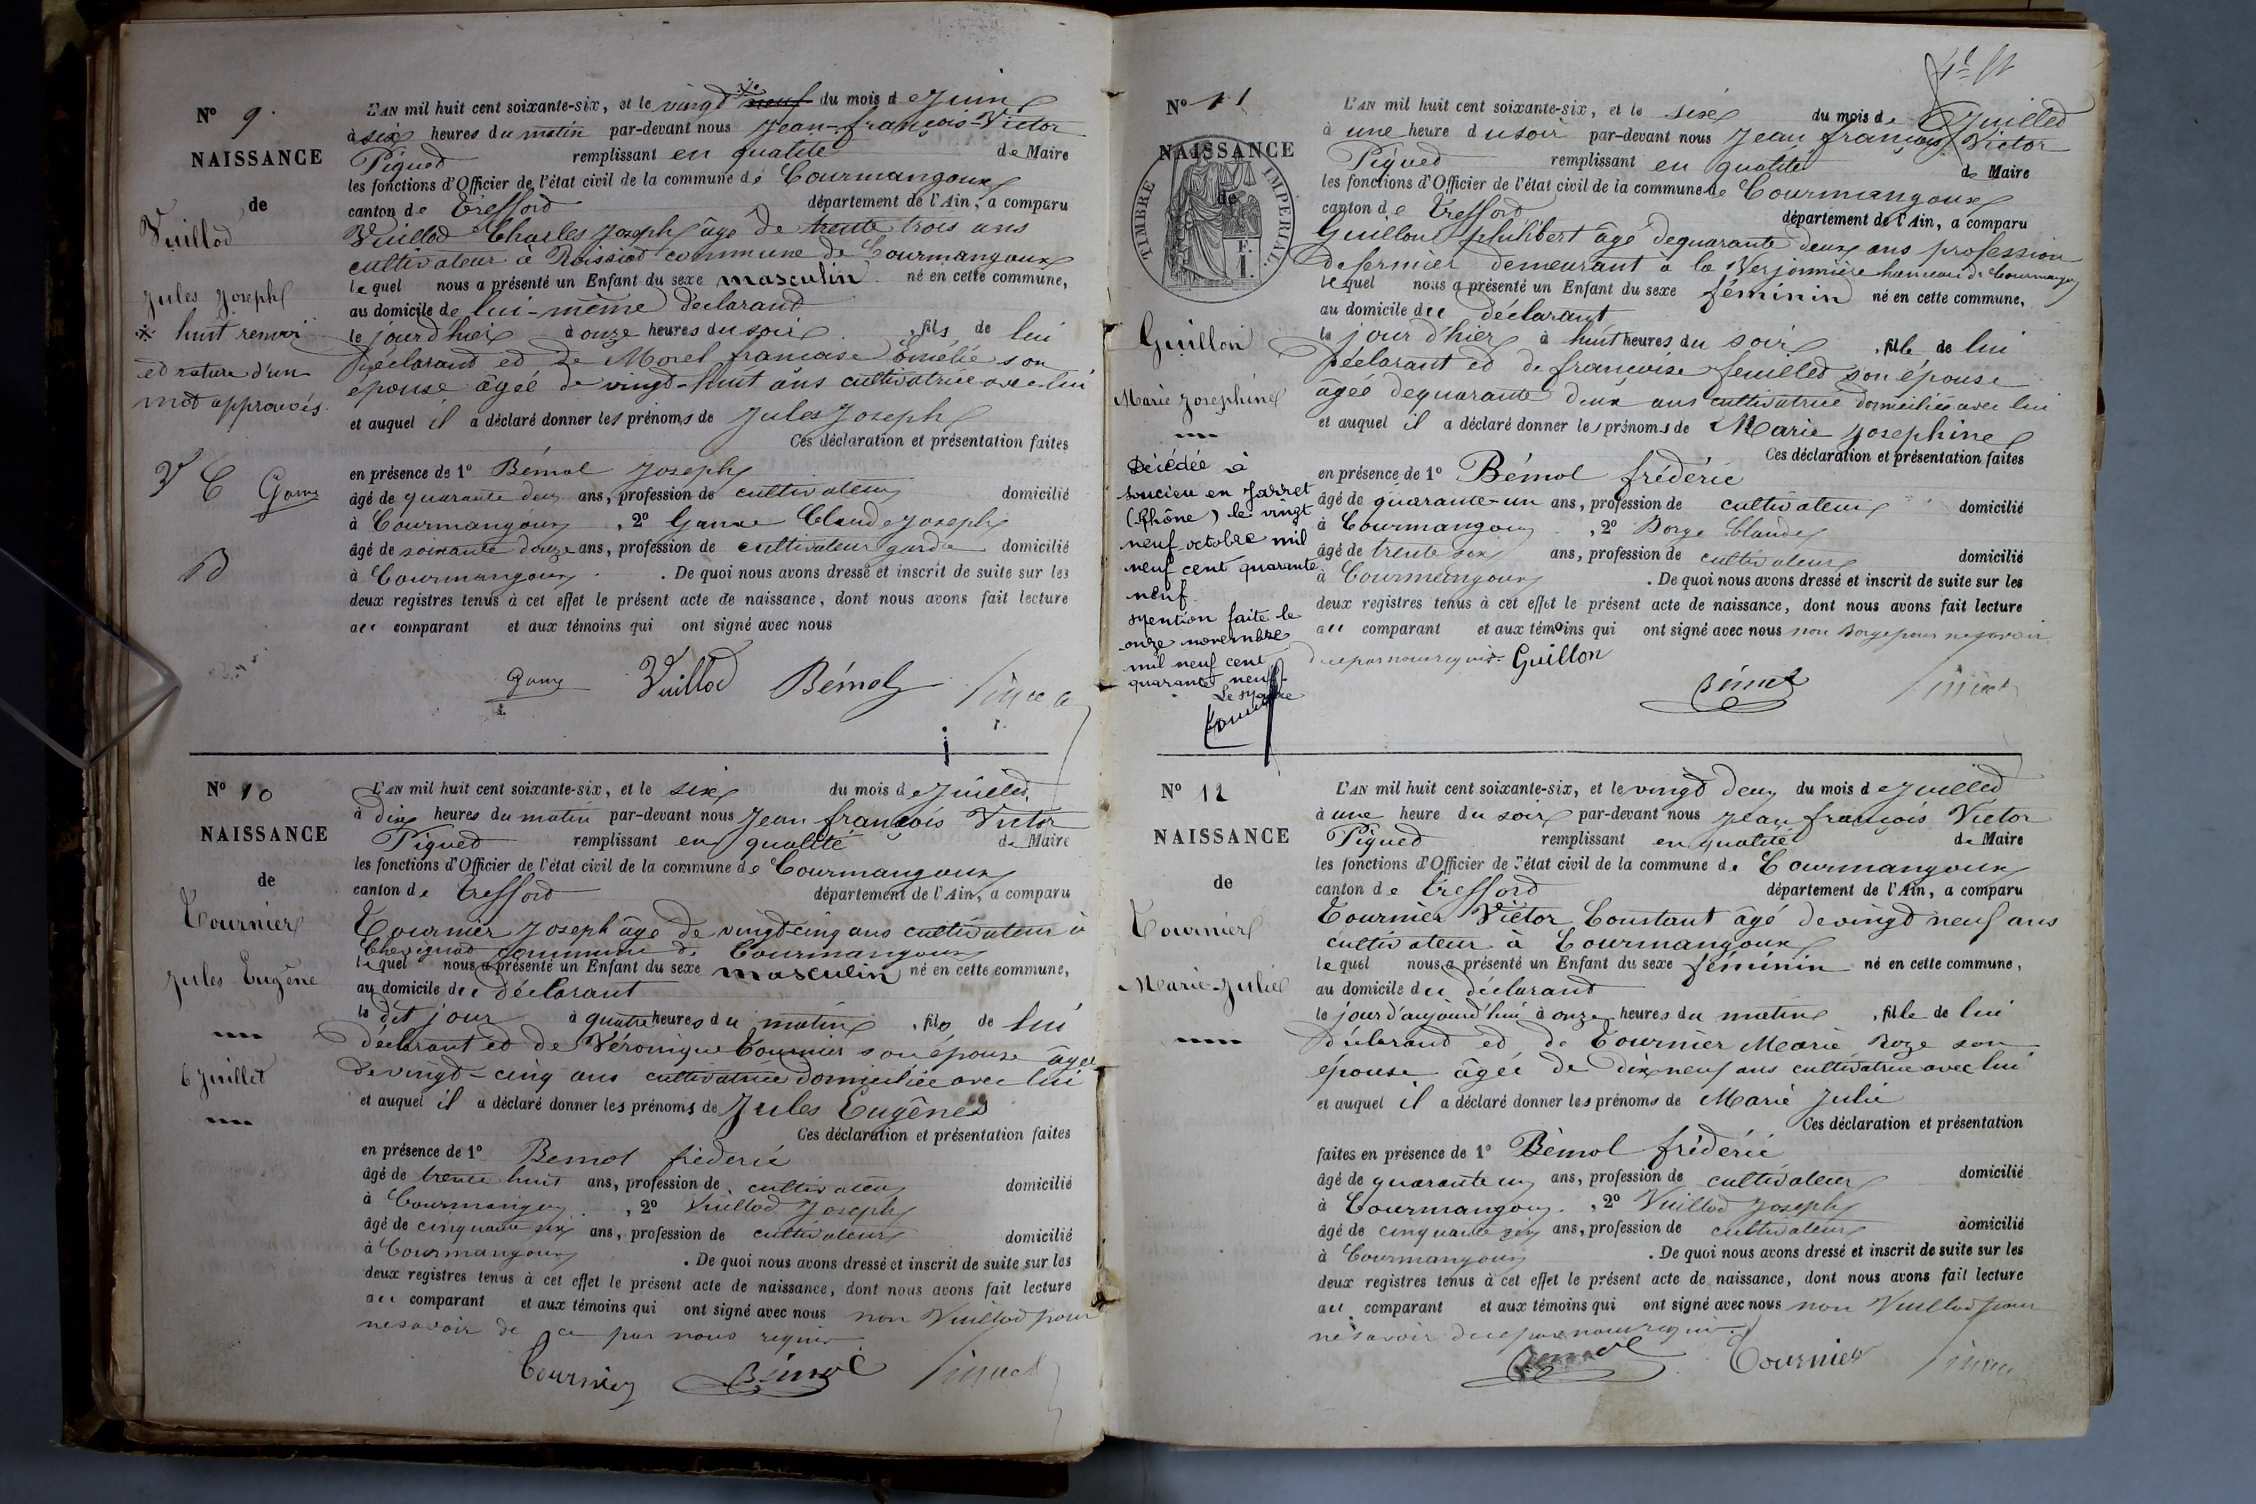 N° 9.
NAISSANCE
de
Vuillod
Jules Joseph
* huit renvoi
et rature d'un
mot approuvés.
V C Game
B
L'AN mil huit cent soixante-six, et le vingt * neuf du mois de Juin
à six heures du matin par-devant nous Jean-françois-Victor
Piqued remplissant en qualité de Maire
les fonctions d'Officier de l'état civil de la commune de Courmangoux
canton de Treffort département de l'Ain, a comparu
Vuillod Charles Joseph âgé de trente trois ans
cultivateur à Roissiat commune de Courmangoux
lequel nous a présenté un Enfant du sexe masculin né en cette commune,
au domicile de lui-même déclarand
le jour d'hier à onze heures du soir, fils de lui
déclarand ed de Morel francoise Omélie son
épouse âgée de vingt-huit ans cultivatrice avec lui
et auquel il a déclaré donner les prénoms de Jules Joseph
Ces déclaration et présentation faites
en présence de 1° Bémol Joseph
âgé de quarante deux ans, profession de cultivateur domicilié
à Courmangoux, 2° Game Claude Joseph
âgé de soixante douze ans, profession de cultivateur garde domicilié
à Courmangoux. De quoi nous avons dressé et inscrit de suite sur les
deux registres tenus à cet effet le présent acte de naissance, dont nous avons fait lecture
au comparant et aux témoins qui ont signé avec nous
Game Vuillod Bémol
N° 10
NAISSANCE
de
Tournier
Jules Eugène
6 Juillet
L'AN mil huit cent soixante-six, et le six du mois de Juillet,
à dix heures du matin par-devant nous Jean françois Victor
Piqued remplissant en qualité de Maire
les fonctions d'Officier de l'état civil de la commune de Courmangoux
canton de Treffort département de l'Ain, a comparu
Tournier Joseph âgé de vingt-cinq ans cultivateur à
Chevignat commune de Courmangoux
lequel nous a présenté un Enfant du sexe masculin né en cette commune,
au domicile du déclarant
le dit jour à quatre heures du matin, fils de lui
déclarant ed de Véronique Tournier son épouse âgée
de vingt-cinq ans cultivatrice domiciliée avec lui
et auquel il a déclaré donner les prénoms de Jules Eugène
Ces déclaration et présentation faites
en présence de 1° Bemol fréderic
âgé de trente huit ans, profession de cultivateur domicilié
à Courmangoux, 2° Vuillod Joseph
âgé de cinquante six ans, profession de cultivateur domicilié
à Courmangoux. De quoi nous avons dressé et inscrit de suite sur les
deux registres tenus à cet effet le présent acte de naissance, dont nous avons fait lecture
au comparant et aux témoins qui ont signé avec nous non Vuillod pour
ne savoir de ce par nous requis
Tournier Bémol Piqued
N° 11
NAISSANCE
de
TIMBRE IMPERIAL
F. 1.
Guillon
Marie Josephine
Décédée à
Soucieu en Jarret
(Rhône) le vingt
neuf octobre mil
neuf cent quarante
neuf.
Mention faite le
onze novembre
mil neuf cent
quarante neuf.
Le Maire
L'AN mil huit cent soixante-six, et le six du mois de Juillet
à une heure du soir par-devant nous Jean françois Victor
Piqued remplissant en qualité de Maire
les fonctions d'Officier de l'état civil de la commune de Courmangoux
canton de Treffort département de l'Ain, a comparu
Guillon philibert âgé de quarante deux ans profession
de fermier demeurant à la Verjonnière hameau de Courmangoux
lequel nous a présenté un Enfant du sexe féminin né en cette commune,
au domicile du déclarant
le jour d'hier à huit heures du soir, fille de lui
déclarant ed de françoise feuilled son épouse
âgée de quarante deux ans cultivatrice domiciliée avec lui
et auquel il a déclaré donner les prénoms de Marie Josephine
Ces déclaration et présentation faites
en présence de 1° Bémol frédéric
âgé de quarante-un ans, profession de cultivateur domicilié
à Courmangoux, 2° Borge Claude
âgé de trente six ans, profession de cultivateur domicilié
à Courmangoux. De quoi nous avons dressé et inscrit de suite sur les
deux registres tenus à cet effet le présent acte de naissance, dont nous avons fait lecture
au comparant et aux témoins qui ont signé avec nous non Borge pour ne savoir
de ce par nous requis. Guillon
Bémol
N° 12
NAISSANCE
de
Tournier
Marie-Julie
L'AN mil huit cent soixante-six, et le vingt deux du mois de Juillet
à une heure du soir par-devant nous Jean françois Victor
Piqued remplissant en qualité de Maire
les fonctions d'Officier de l'état civil de la commune de Courmangoux
canton de Treffort département de l'Ain, a comparu
Tournier Victor Constant âgé de vingt neuf ans
cultivateur à Courmangoux
lequel nous a présenté un Enfant du sexe féminin né en cette commune,
au domicile du déclarand
le jour d'aujourd'hui à onze heures du matin, fille de lui
déclarand ed de Tournier Marie Roze son
épouse âgée de dix neuf ans cultivatrice avec lui
et auquel il a déclaré donner les prénoms de Marie Julie
Ces déclaration et présentation
faites en présence de 1° Bémol frédéric
âgé de quarante un ans, profession de cultivateur domicilié
à Courmangoux, 2° Vuillod Joseph
âgé de cinquante six ans, profession de cultivateur domicilié
à Courmangoux. De quoi nous avons dressé et inscrit de suite sur les
deux registres tenus à cet effet le présent acte de naissance, dont nous avons fait lecture
au comparant et aux témoins qui ont signé avec nous non Vuillod pour
ne savoir de ce par nous requis.
Bémol Tournier